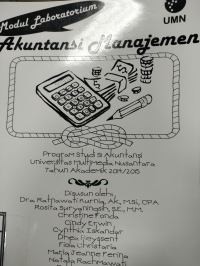 Modul Laboratorium
UMN
Akuntansi Manajemen
Program Studi S1 Akuntansi
Universitas Multimedia Nusantara
Tahun Akademik 2014/2015
Disusun oleh:
Dra. Ratnawati Kurnia, Ak, M.Si, CPA
Rosita Suryaningsih, S.E., M.M.
Christine Fonda
Cindy Erwin
Cynthia Iskandar
Maria Jeanne Ferina
Natalia Rachmawati